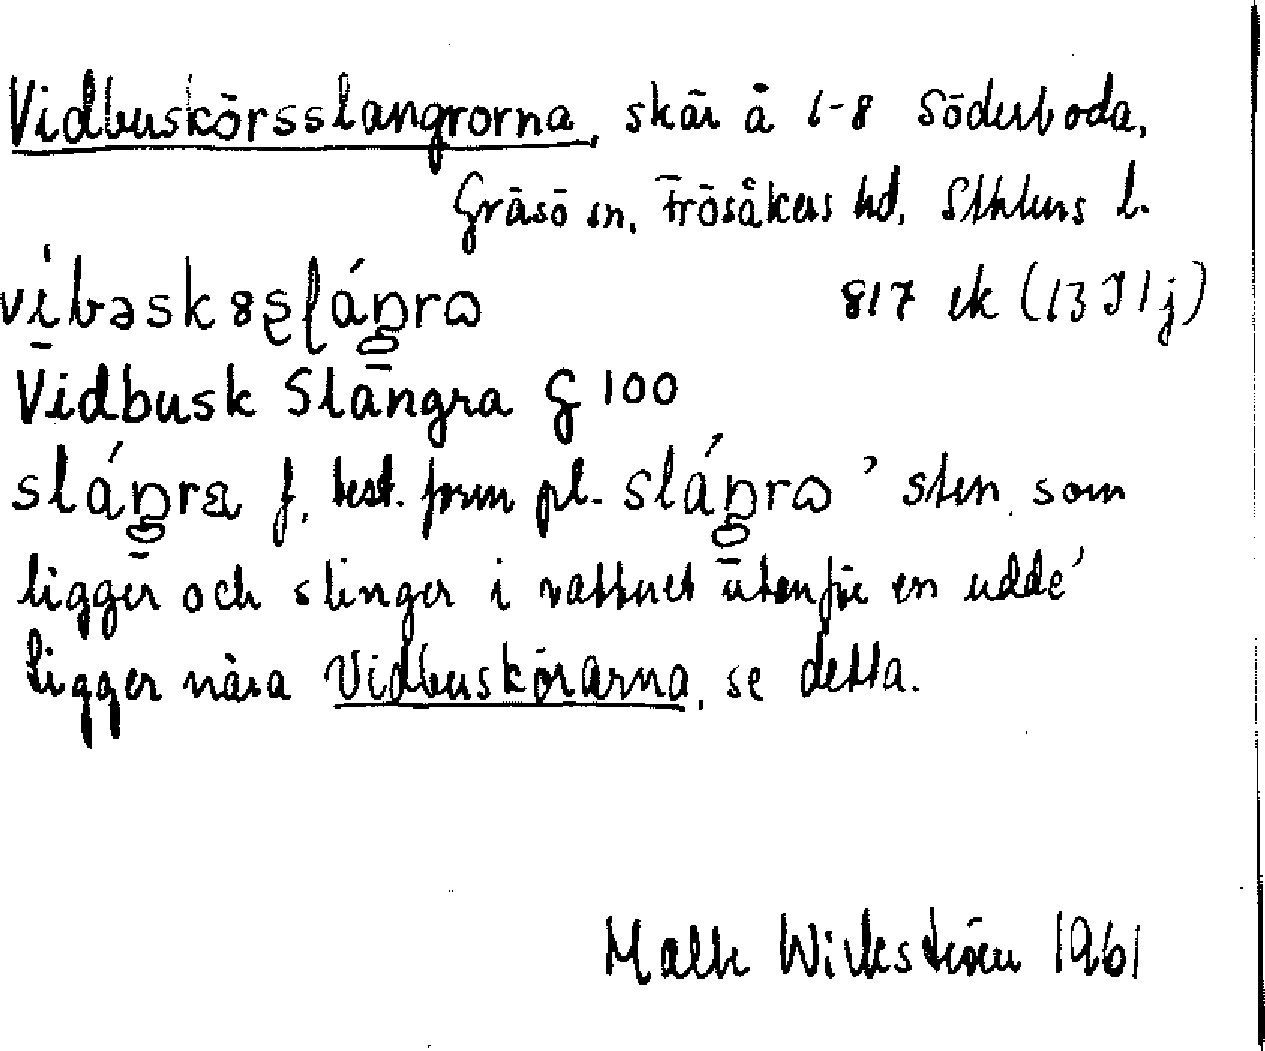 Vidbuskörsslangrorna, skär å 1-8 Söderboda,
Gräsö sn, Frösåkers hd, Sthlms l.
817 ek (13 I 1 j)
Vidbusk Slängra G 100
f. best. form pl. ' sten som
ligger och slinger i vattnet utanför en udde'
ligger nära Vidbuskörarna, se detta.
Wickström 1961